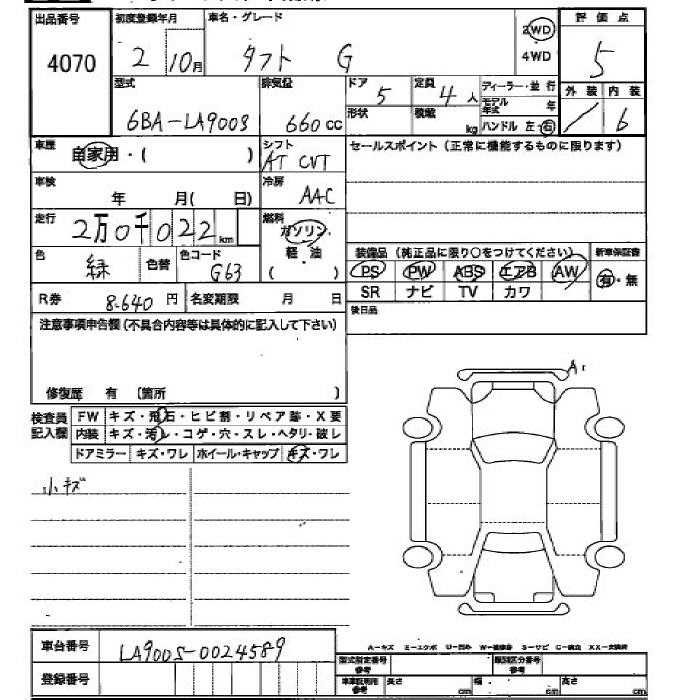 出品番号 初度登録年月 車名・グレード 評価点
4070 2 10月 タフト G 2WD 4WD 5
型式 排気量 ドア 5 定員 4人 ディーラー・並行 外装 内装
6BA-LA900S 660cc 形状 積載 kg モデル年式 年 ハンドル 左・右 / 6
車歴 自家用・( ) シフト AT CVT セールスポイント(正常に機能するものに限ります)
車検 年 月( 日) 冷房 AAC
走行 2万0千022km 燃料 ガソリン 軽油 ( )
色 緑 色替 色コード G63
装備品(純正品に限り○をつけてください) 新車保証書
PS PW ABS エアB AW 有・無
SR ナビ TV カワ
R券 8,640円 名変期限 月 日 後日品
注意事項申告欄(不具合内容等は具体的に記入して下さい)
修復歴 有 〔箇所 〕
検査員記入欄 FW キズ・飛石・ヒビ割・リペア跡・X要
内装 キズ・汚レ・コゲ・穴・スレ・ヘタリ・破レ
ドアミラー キズ・ワレ ホイール・キャップ キズ・ワレ
A1
小キズ
A-キズ E-エクボ U-凹み S-サビ XX-交換済
車台番号 LA900S-0024589
型式指定番号 参考 類別区分番号 参考
登録番号 車車証明用 参考 長さ cm 幅 cm 高さ cm